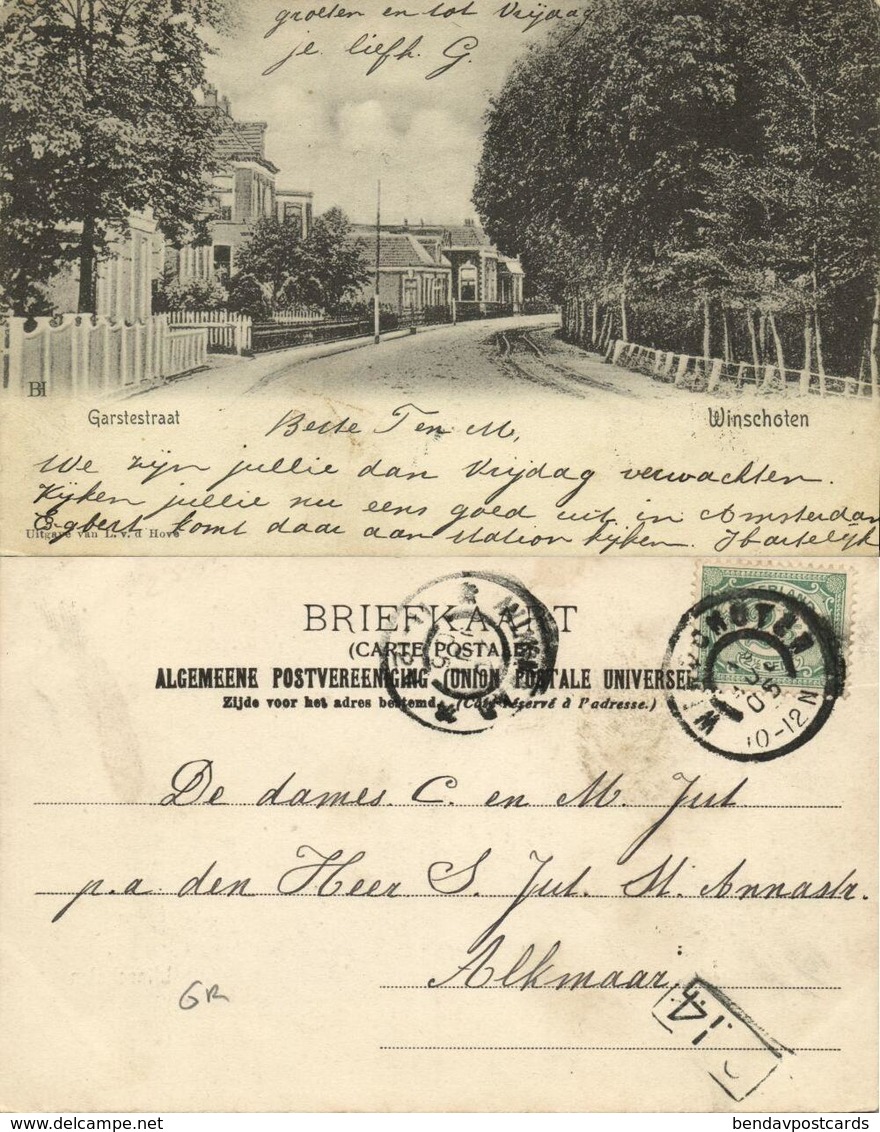 groeten en tot Vrijdag
je liefh. G.
BH
Garstestraat
Winschoten
Beste T en M,
We zijn jullie dan Vrijdag verwachten.
Kijken jullie nu eens goed uit in Amsterdam
Egbert komt daar aan station kijken. Hartelijk
Uitgave van L. v. d Hove
BRIEFKAART
(CARTE POSTALE)
ALGEMEENE POSTVEREENIGING (UNION POSTALE UNIVERSELLE)
Zijde voor het adres bestemd. (Côté réservé à l'adresse.)
WINSCHOTEN
05
10-12 N
De dames. C. en M. Jut
p.a den Heer S. Jut. St. Annastr.
Alkmaar.
GR
14
bendavpostcards